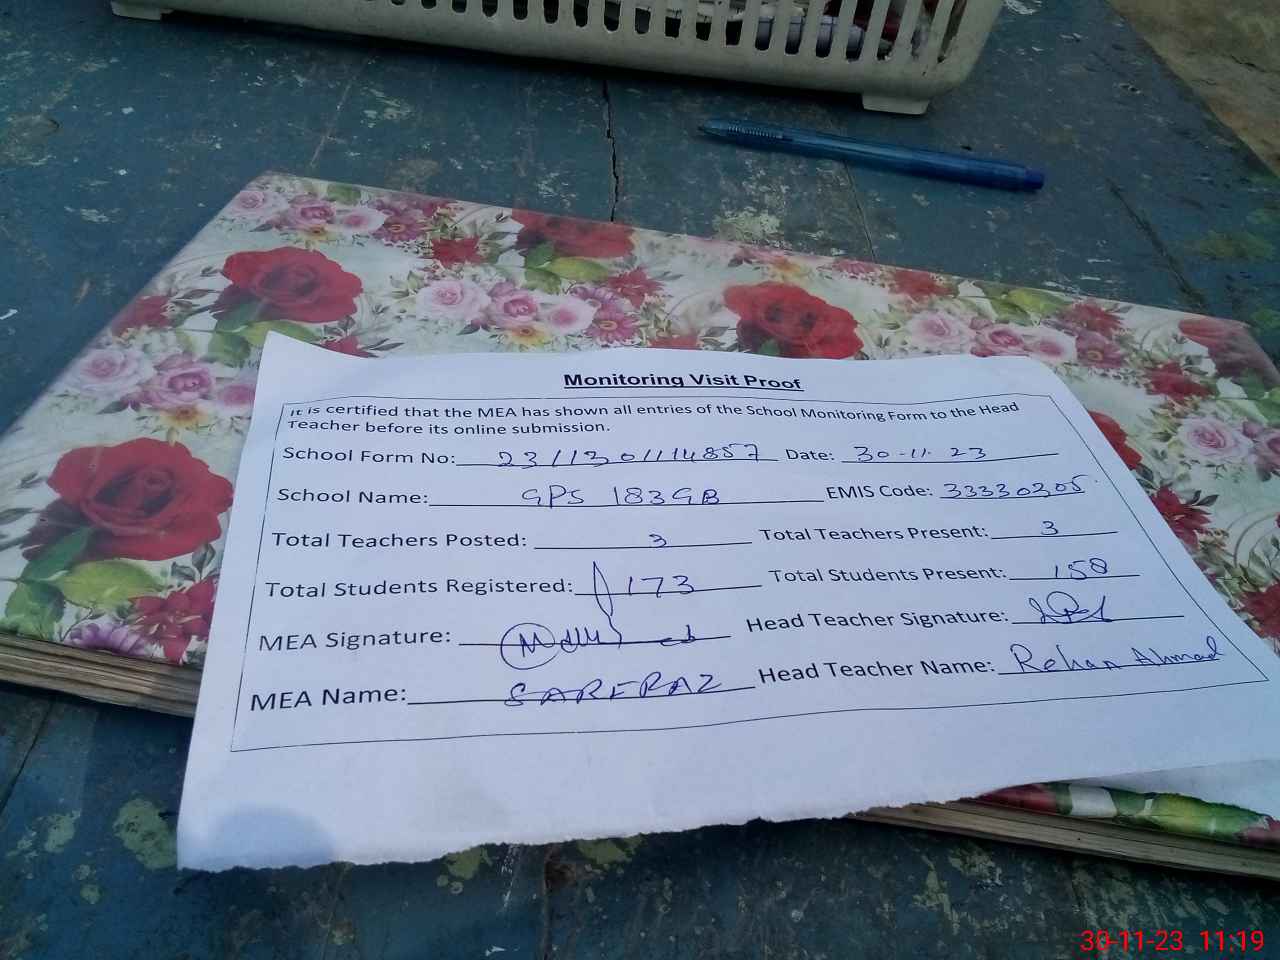 Monitoring Visit Proof
It is certified that the MEA has shown all entries of the School Monitoring Form to the Head
Teacher before its online submission.
School Form No: 2311301114857 Date: 30-11-23
School Name: GPS 183GB EMIS Code: 33330305
Total Teachers Posted: 3 Total Teachers Present: 3
Total Students Registered: 173 Total Students Present: 158
MEA Signature: Head Teacher Signature:
MEA Name: SARFRAZ Head Teacher Name: Rehan Ahmad
30-11-23 11:19